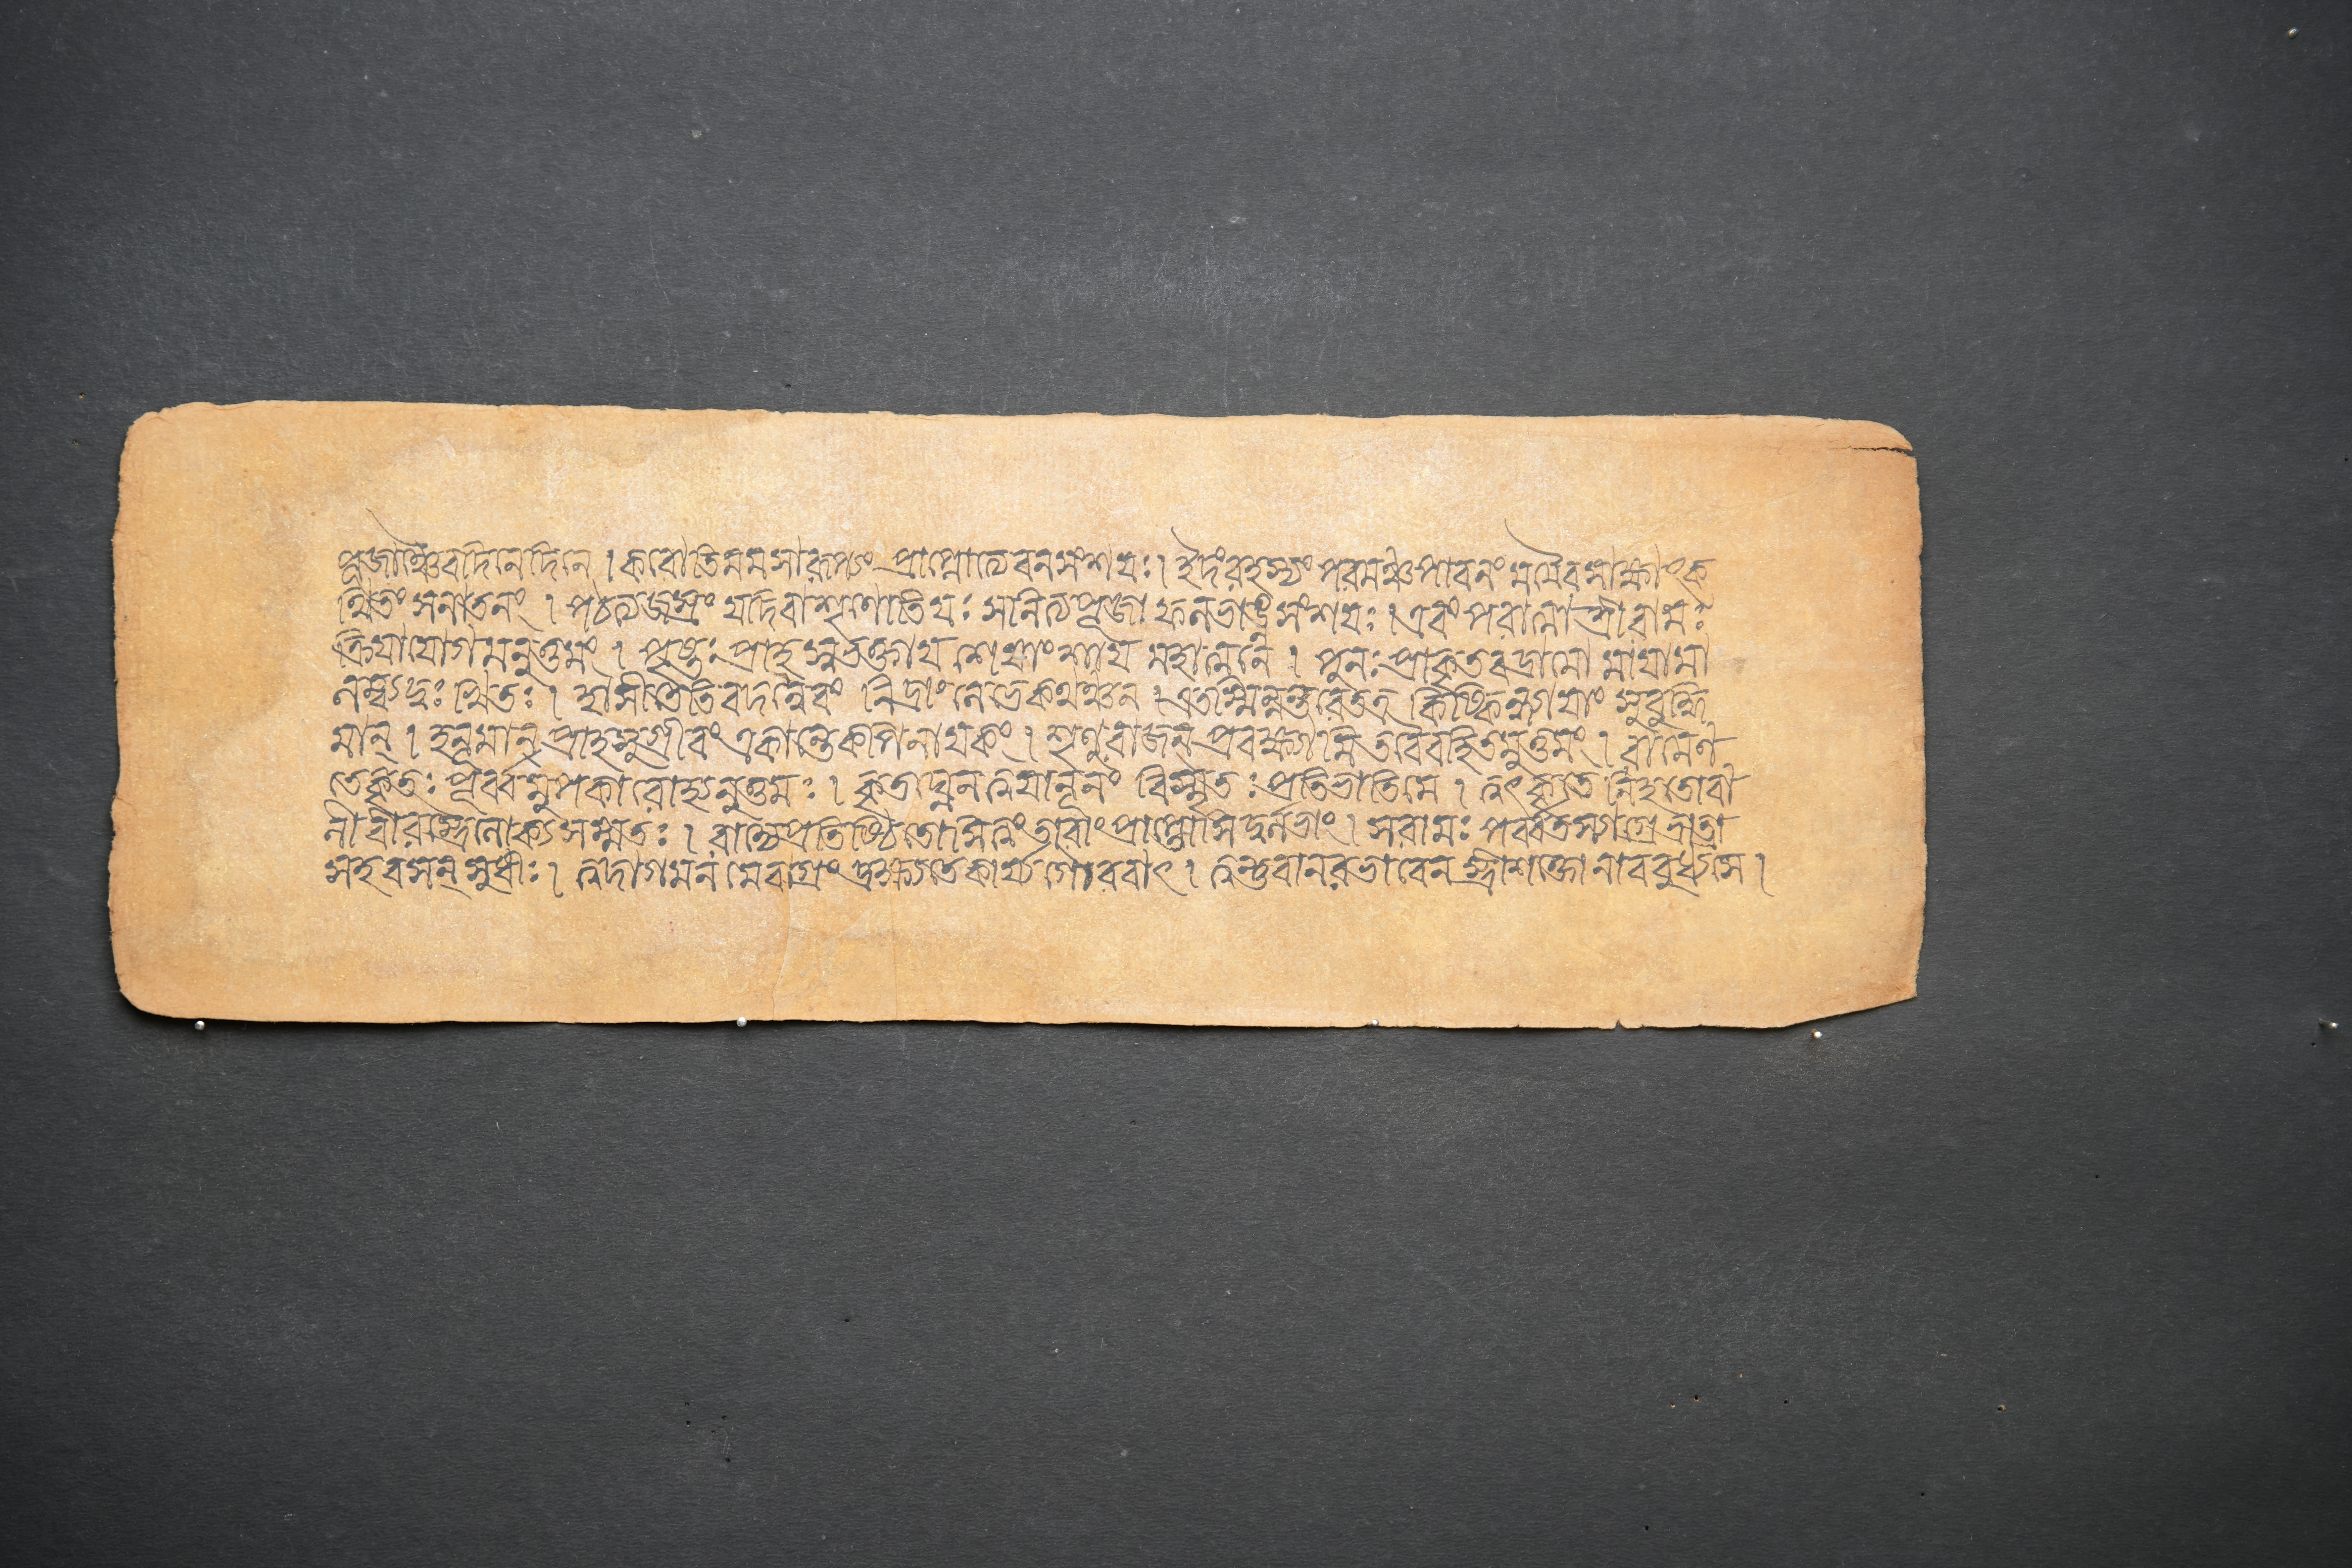 পূজাঞ্চৈব দিনেদিনে । করোতি মম সারূপ্যং প্রাপ্নোত্যেব নসংশয়ঃ । ইদংরহস্যং পরমঞ্চপাবনং মমৈব সাক্ষাৎক
থিতং সনাতনং । পঠত্যজস্রং যদিবা শৃণোতিযঃ সনিত্যপূজা ফলভাঙ্নসংশয়ঃ । এবং পরাত্মা শ্রীরামঃ
ক্রিয়াযোগমনুত্তমং । পৃষ্টঃ প্রাহ স্বভক্তায় শেষাংশায় মহাত্মনে । পুনঃ প্রাকৃতবদ্রামো মায়ামা
লম্ব্য দুঃখিতঃ । হাসীতেতিবদন্নৈবং নিদ্রাং লেভেকথঞ্চন । এতস্মিন্নন্তরেতত্র কিষ্কিন্ধ্যায়াং সুবুদ্ধি
মান্ । হনূমান্ প্রাহসুগ্রীবং একান্তেকপিনায়কং । শৃণুরাজন্ প্রবক্ষ্যামি তবৈবহিতমুত্তমং । রামেণ
তেকৃতঃ পূর্ব্বমুপকারোহ্যনুত্তমঃ । কৃতঘ্নেনত্বয়ানূনং বিস্মৃতঃ প্রতিভাতিমে । ত্বৎকৃতে নিহতোবা
লী বীরস্ত্রৈলোক্যসম্মতঃ । রাজ্যেপ্রতিষ্ঠিতোসিত্বং তারাংপ্রাপ্তোসিদুর্লভাং । সরামঃ পর্ব্বতস্যাগ্রে ভ্রাত্রা
সহবসন্ সুধীঃ । ত্বদাগমনমেবাগ্রং প্রেক্ষ্যতেকার্য্যগৌরবাৎ । ত্বন্তুবানরভাবেন স্ত্রীশক্তোনাববুধ্যসে ।